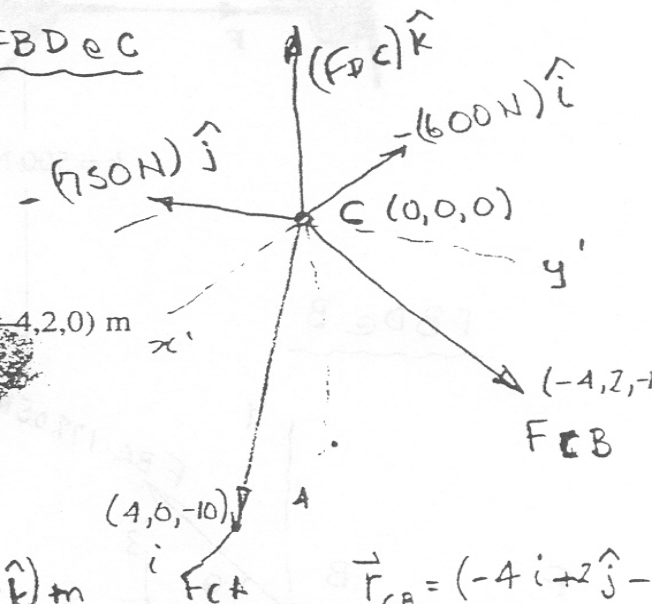 FBD @ C
(F_DC) k̂
-(600N) î
-(750N) ĵ
C (0,0,0)
y'
-4,2,0) m
x'
(-4,2,-1
F_CB
(4,0,-10)
A
i
F_CA
k̂) m
r⃗_CB = (-4 i + 2 ĵ -